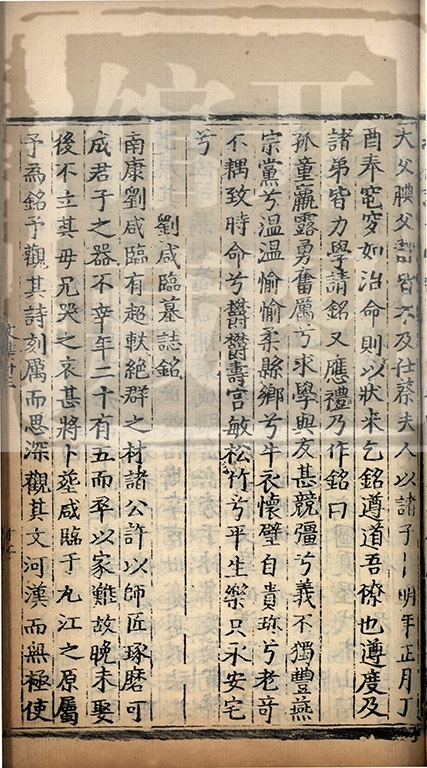 大父腆父 皆不及仕蔡夫人以諸子 明年正月丁
酉奉窀穸如治命則以狀來乞銘遵道吾僚也遵度及
諸弟皆力學請銘又應禮乃作銘曰
孤童羸露勇奮厲兮求學與友甚競彊兮義不獨豐燕
宗黨兮温温愉愉柔縣鄉兮牛衣懷璧自貴珎兮老竒
不耦致時命兮欝欝壽宫敏松竹兮平生樂只永安宅
兮
劉咸臨墓誌銘
南康劉咸臨有超軼絶群之材諸公許以師匠琢磨可
成君子之器不幸年二十有五而卒以家難故晚未娶
後不立其母兄哭之哀甚將卜塟咸臨于九江之原屬
予為銘予觀其詩刻厲而思深觀其文河漢而無極使